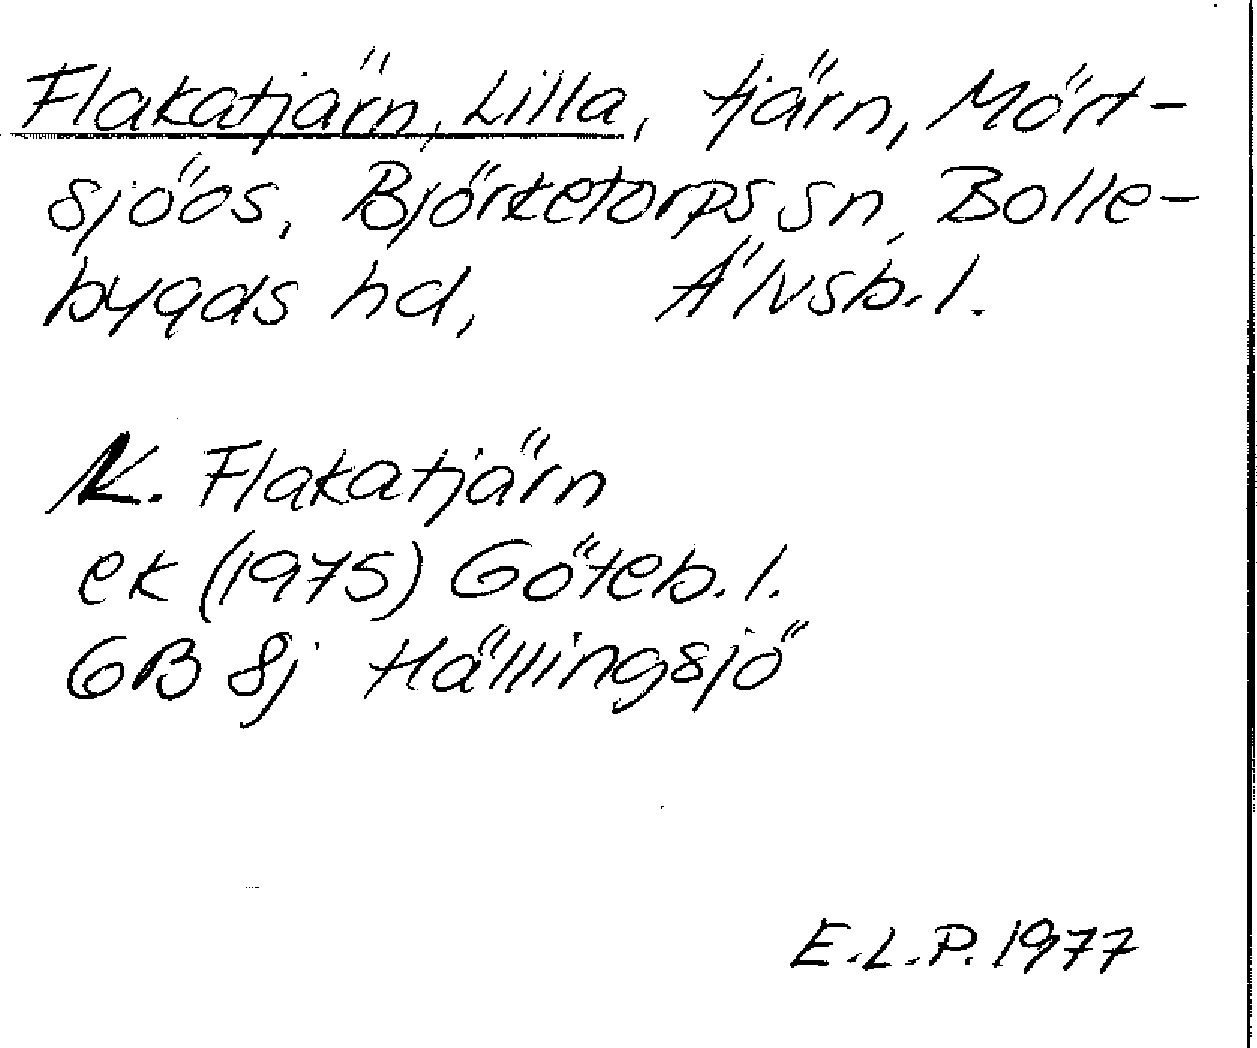 Flakatjärn, Lilla, tjärn, Mört-
sjöos, Björketorps sn, Bolle-
bygds hd, Älvsb. l.
Flakatjärn
ek (1975) Göteb. l.
GB 8j Hällingsjö
E.L.P. 1977